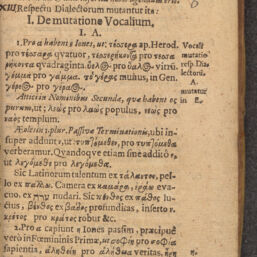 XIII. Respectu Dialectorum mutantur ita:
I. De mutatione Vocalium,
I. A.
1. Pro α habent ε Iones, ut: τέσσερα ap. Herod.
pro τέσσαρα quatuor, τεσσερήκοντα pro τεσσα-
ρήκοντα quadraginta. βελος pro βαλος virtu,
γέμμα pro γάμμα. τὸ γέρας munus, in Gen.
γέρεος pro γέραος.
Attici in Nominibus Secundæ, quæ habent ος
purum, ut: λεώς pro λαὸς populus, νεὼς pro
ναὸς templum.
Æoles in 1. plur. Passivæ Terminationis, ubi in-
super addunt, ut:
verberamur. Quandoque etiam sine additô σ,
ut λεγόμεθεν pro λεγόμεθα.
Sic Latinorum talentum ex τάλαντον, pel-
lo ex πάλλω. Camera ex καμάρα, ἐράω eva-
cuo. ex nudari. Sic πένθος ex πάθος lu-
ctus, βένθος ex βάθος profunditas, inserto ν.
κρέτος pro κράτος robur &c.
2. Pro α capiunt η Iones passim, præcipuè
verò in Fœmininis Primæ, ut σοφίη pro σοφία
sapientia, ἀληθείη pro ἀλήθεια veritas,
Vocali
mutatio
resp. Dia
lectorū.
A.
mutatur
in